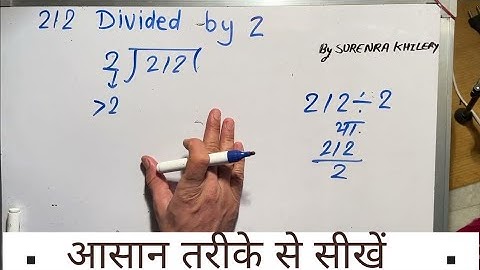 212 Divided by 2
By SURENRA KHILERY
2)212(
>2
212÷2
या
212
2
▪ आसान तरीके से सीखें ▪